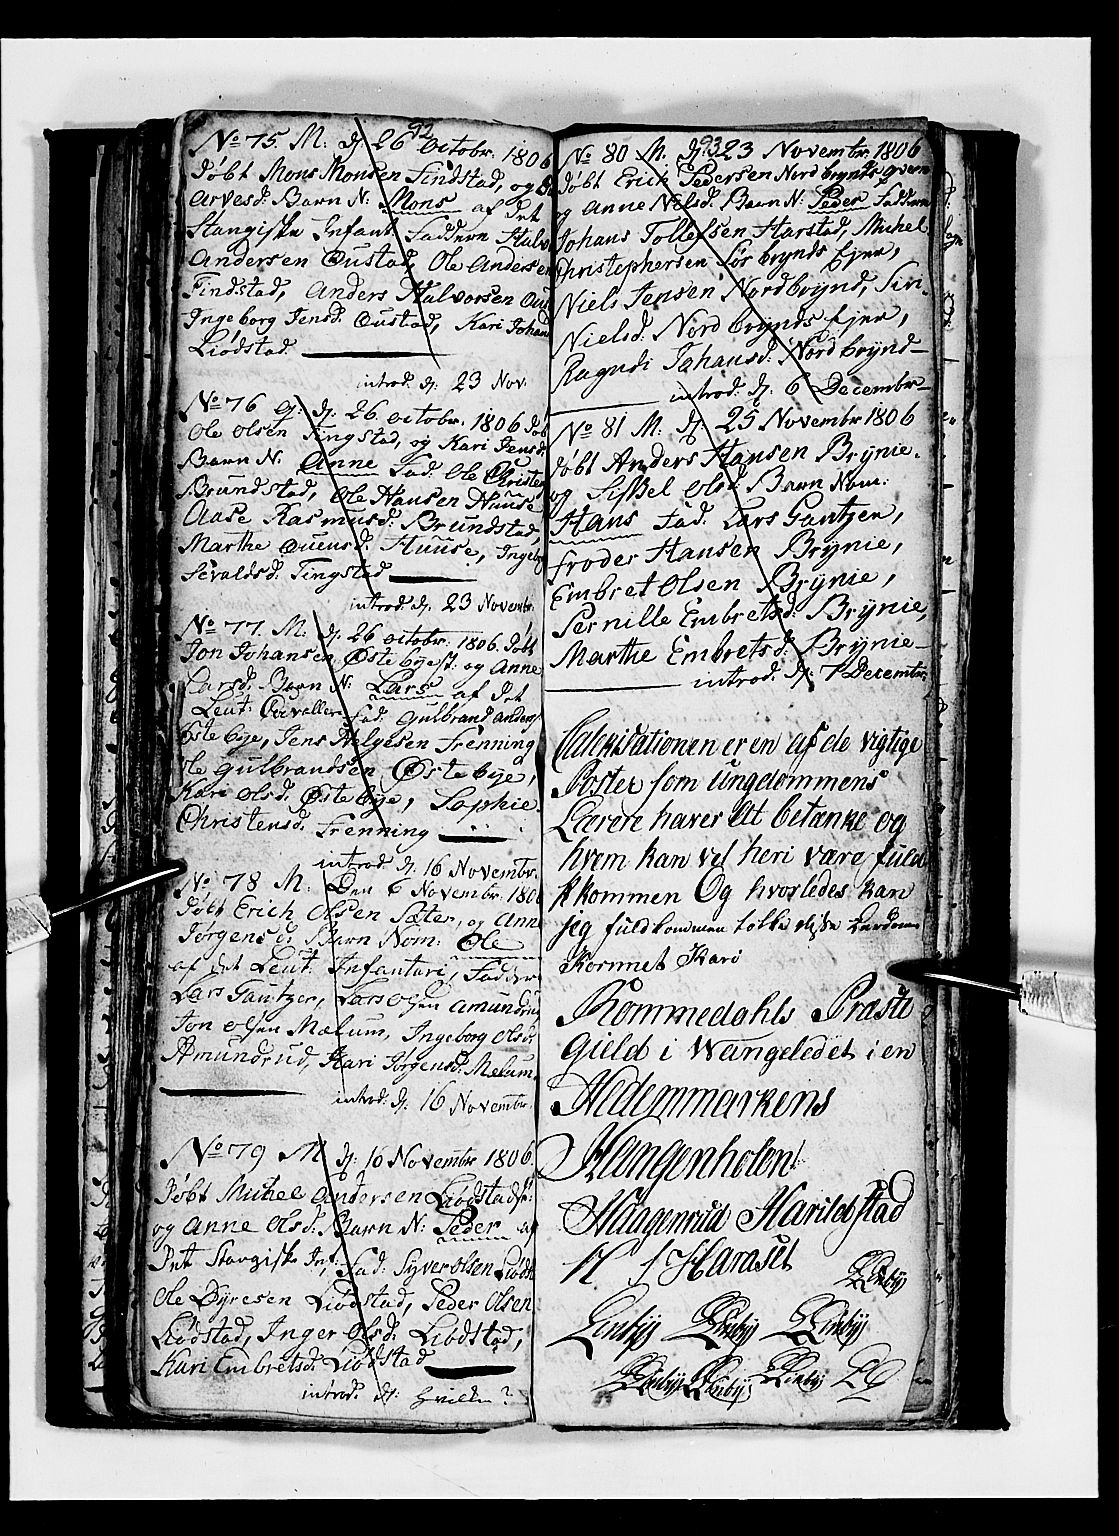 92
No 75. M: dj 26 Octobr. 1806
Døbt Mons Monsen Findstad, og
Arvesd: Barn N: Mons af det
Stangiske Infant Faddern Halv
Andersen Oustad, Ole Andersen
Findstad, Anders Halvorsen Ous
Ingeborg Jensd: Oustad, Kari Johans
Liødstad.
introd: dj: 23 Nov:
No 76 dj: 26 octobr. 1806 Døb
Ole Olsen Tingstad, og Kari Jensd:
Barn N: Anne Fad: Ole Christen
Brundstad, Ole Hansen Huuse
Aase Rasmusd: Brundstad,
Marthe Ouensd: Huuse, Ingeb
Sevaldsd: Tingstad
introd: dj: 23 Novembr.
No 77. M: dj: 26 octobr. 1806. Døbt
Jon Johansen Østebye og Anne
Larsd: Barn N: Lars af det
Leut: Fad: Gulbrand Anders
Østebye, Jens Helgesen Frenning
Ole Gulbrandsen Østebye,
Kari Olsd: Østebye, Sophie
Christensd: Frenning
introd: dj 16 Novembr.
No 78 M: Den 6 Novembr. 180
Døbt Erich Olsen Sæter, og Ann
Jørgensd: Barn Nom: Ole
af det Leut: Infanteri, Fadder
Lars Gautzer, Lars Olsen Amundru
Jon Olsen Mælum, Ingeborg Olsd:
Amundrud, Kari Jørgensd: Melum.
introd: dj: 16 Novembr.
No 79 M dj: 10 Novembr 1806.
Døbt Michel Andersen Liødstad
og Anne Olsd: Barn N: Peder af
Det Stangiske Inf: Fad: Syver Olsen Liødst
Ole Øyresen Liødstad, Peder Olsen
Liødstad, Inger Olsd: Liødstad,
Kari Embretsd: Liødstad
introd: dj: hvilken?
93
No 80 M. dj: 23 Novembr. 1806
Døbt Erich Pedersen Nordbrynds
og Anne Nilsd: Barn N: Peder Faddern
Johans Tollefsen Harstad, Michel
Christophersen Sørbrynds Ejer,
Niels Jensen Nordbrynd, Siri
Nielsd: Nordbrynds Ejer,
Ragndi Johansd: Nordbrynd
introd: dj: 6 Decembr
No 81 M. dj: 25 Novembr 1806
Døbt Anders Hansen Brynie.
og Sissel Olsd: Barn Nom:
Hans Fad: Lars Gautzer,
Froder Hansen Brynie,
Embret Olsen Brynie,
Pernille Embretsd: Brynie,
Marthe Embretsd: Brynie
introd: dj: 7 Decembr.
Catekisationen er en af de vigtige
Poster som ungdommens
Lærere haver at betænke og
hvem kan vel heri være fuld
kommen Og hvorledes kan
jeg fuldkommen tolke disse
Kornmet Karo
Rommedahls Præste
Gield i Wangeledet i en
Hedemmarkens
Mangenholen
Maagenrud Harildstad
H f Haraset
Linbÿ
Linbÿ Linbÿ Linbÿ
Linbÿ Linbÿ Linbÿ